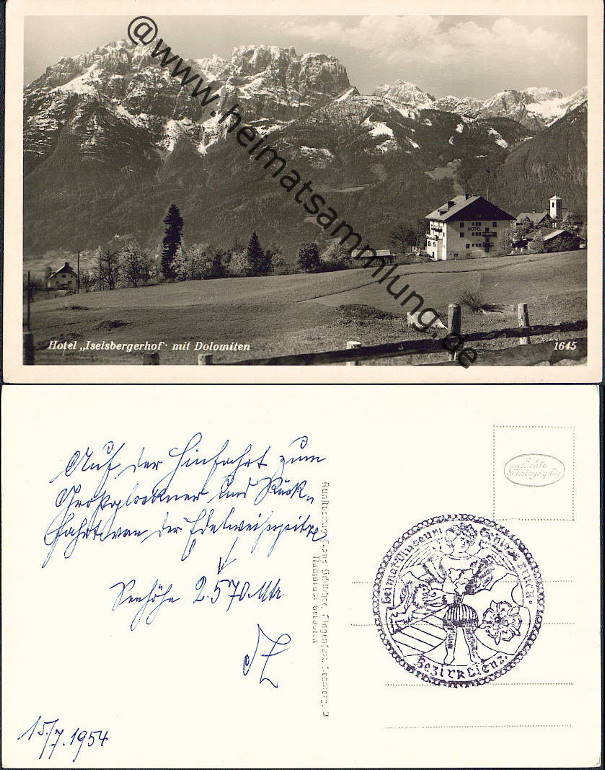 @www.heimatsammlung.de
HOTEL
Hotel „Iselsbergerhof" mit Dolomiten
1645
Auf der Hinfahrt zum
Großglockner und Rück-
fahrt von der Edelweißspitze
Seehöhe 2.570 Mtr
15/7. 1954
Echte
Heimatmuseum Schloss Bruck
Bezirk Lienz